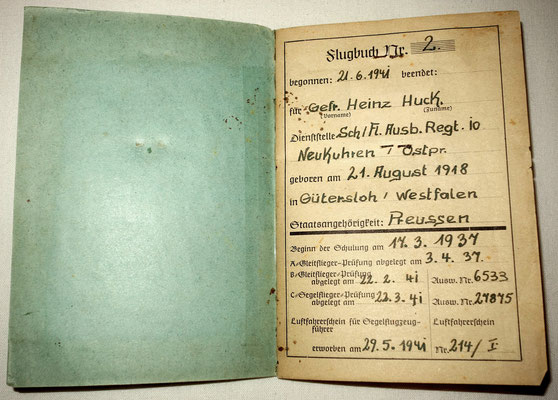 Flugbuch Nr. 2.
begonnen: 21.6.1941 beendet:
für Gefr. Heinz Huck.
(Vorname) (Zuname)
Dienststelle Sch/Fl. Ausb. Regt. 10
Neukuhren Ostpr.
geboren am 21. August 1918
in Gütersloh / Westfalen
Staatsangehörigkeit: Preussen
Beginn der Schulung am 17.3.1937
A-/Gleitflieger-Prüfung abgelegt am 3.4.37.
B-/Gleitflieger-Prüfung
abgelegt am 22.2.41 Ausw. Nr. 6533
C-/Segelflieger-Prüfung
abgelegt am 22.3.41 Ausw. Nr. 27875
Luftfahrerschein für Segelflugzeug- Luftfahrerschein
führer
erworben am 29.5.1941 Nr. 214/I